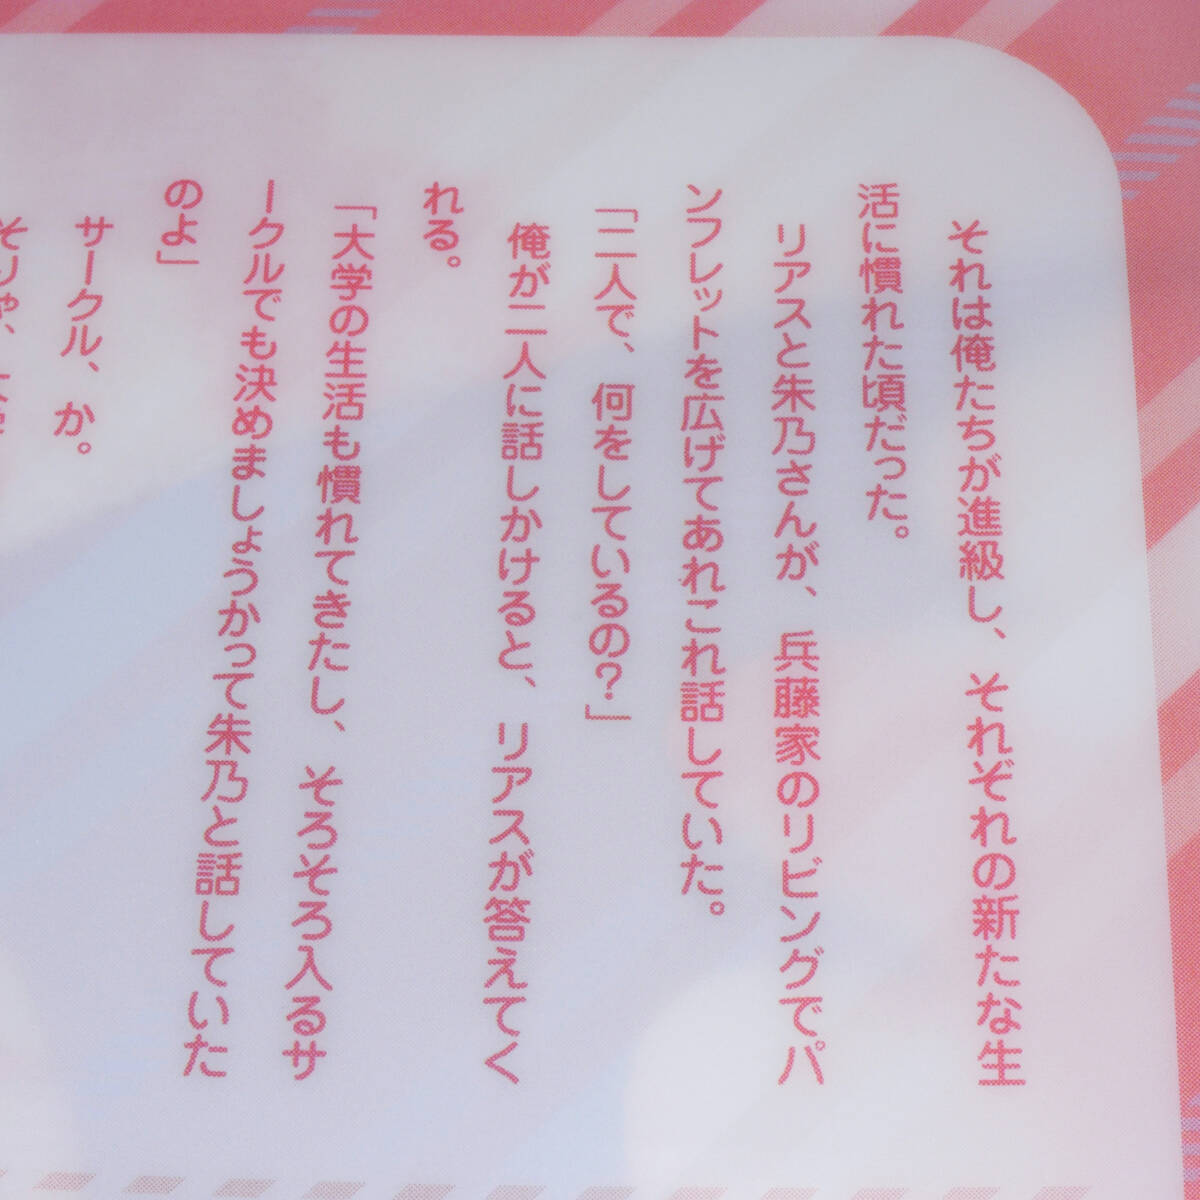 それは俺たちが進級し、それぞれの新たな生
活に慣れた頃だった。
リアスと朱乃さんが、兵藤家のリビングでパ
ンフレットを広げてあれこれ話していた。
「二人で、何をしているの？」
俺が二人に話しかけると、リアスが答えてく
れる。
「大学の生活も慣れてきたし、そろそろ入るサ
ークルでも決めましょうかって朱乃と話していた
のよ」
サークル、か。
そりゃ、